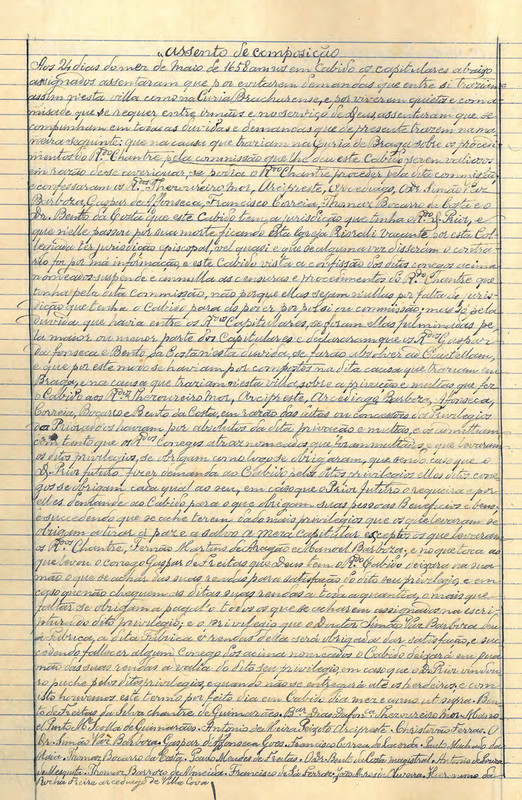 "Assento de composição
Aos 24 dias do mez de Maio de 1658 annos em Cabido os capitulares abaixo
assignados assentaram que por evitarem demandas que entre si traziam
assim nesta villa como na Curia Bracharense, e por viverem quietos e com a
misade que se requer entre irmãos e no serviço de Deus, assentaram que se
compunham em todas as duvidas e demandas que de presente trazem na ma-
neira seguinte: que na causa que traziam na Curia de Braga sobre os procedi-
mentos do Rdo Chantre pela commissão que lhe deu este Cabido serem validos
em razão de se averiguar, se podia o Rdo Chantre proceder pela dita commissão,
e confessaram os Rdos Thezoureiro mor, Arcipreste, Arcediago, o Dr. Simão Vaz
Barboza, Gaspar da Affonseca, Francisco Correia, Thomaz Bocarro da Costa e o
Dr. Bento da Costa que este Cabido tem a jurisdição que tinha o Rdo D. Prior, e
que n'elle passou por sua morte ficando esta Egreja Prioral vacante, por esta Col-
legiada ter jurisdição episcopal vel quasi e que se alguma vez disseram o contra-
rio foi por má informação, e este Cabido vista a confissão dos ditos conegos acima
nomeados suspende e annulla as censuras e procedimentos do Rdo Chantre que
tinha pela dita commissão, não porque ellas sejam nullas por falta de juris-
dição que tenha o Cabido para as pôr por si ou commissão, mas só pela
duvida que havia entre os Rdos Capitulares, se foram ellas fulminadas pe-
la maior ou menor parte dos Capitulares e declararam que os Rdos Gaspar
da Fonseca e Bento da Costa n'esta duvida, se farão absolver ad cautellam,
e que por este modo se haviam por compostos na dita causa que traziam em
Braga, e na causa que traziam n'esta villa, sobre a privação e multas que fez
o Cabido aos Rdos Thezoureiro Mor, Arcipreste, Arcediago, Barboza, Affonseca,
Correia, Bocarro e Bento da Costa, em razão das ditas ou concessões dos Privilegios
do Priorado os haviam por absoltos da dita privação e multas, e os admittiam
com tanto que os Rdos Conegos atraz nomeados que foram multados e que levaram
os ditos privilegios, se obrigam como logo se obrigaram, que sendo caso que o
D. Prior futuro fizer demanda ao Cabido pelos ditos privilegios elles ditos cone-
gos se obrigam cada qual ao seu, em caso que o Prior futuro o requeira e por
elles demande ao Cabido para o que obrigam suas pessoas Beneficios e bens,
e succedendo que se ache terem dado mais privilegios que os que levaram se
obrigam a tirar a paz e a salvo a meza capitular exceptos os que levaram
os Rdos Chantre, Fernão Martins de Aragão e Manoel Barboza, e no que toca ao
que levou o conego Gaspar de Freitas que Deus tem o Rdo Cabido deixará na sua
mão o que se achar das suas rendas para satisfação do dito seu privilegio e em
caso que não cheguem as ditas suas rendas a toda a quantia, o mais que
faltar se obrigam a pagal-o todos os que se acharem assignados na escri-
ptura do dito privilegio; e o privilegio que o Doutor Simão Vaz Barboza deu
á Fabrica, a dita Fabrica e rendas d'ella será obrigada dar satisfação, e suc-
cedendo fallecer algum conego dos acima nomeados o Cabido deixará em sua
mão das suas rendas a valia do dito seu privilegio, em caso que o D. Prior vindou-
ro puche pelos ditos privilegios, e quando não se entregará até os herdeiros, e com
isto houvemos este termo por feito dia em Cabido dia mez e anno ut supra. Ben-
to de Freitas da Silva chantre de Guimarães. Thezoureiro Mor. Mano-
el Pinto Mestre Escola de Guimarães. Antonio de Meira Peixoto Arcipreste. Christovão Ferraz. O
Dr. Simão Vaz Barboza. Gaspar da Fonseca Goes. Francisco Correa de Lacerda. Paulo Machado da
Maia. Thomaz Bocarro da Costa. João Mendes de Freitas. O Dr. Bento da Costa magistral. Antonio de Souza
e Mesquita. Thomaz Barroso de Almeida. Francisco de Sá. João de Oliveira. Hieronimo da
Rocha Freire arcediago de Villa Cova